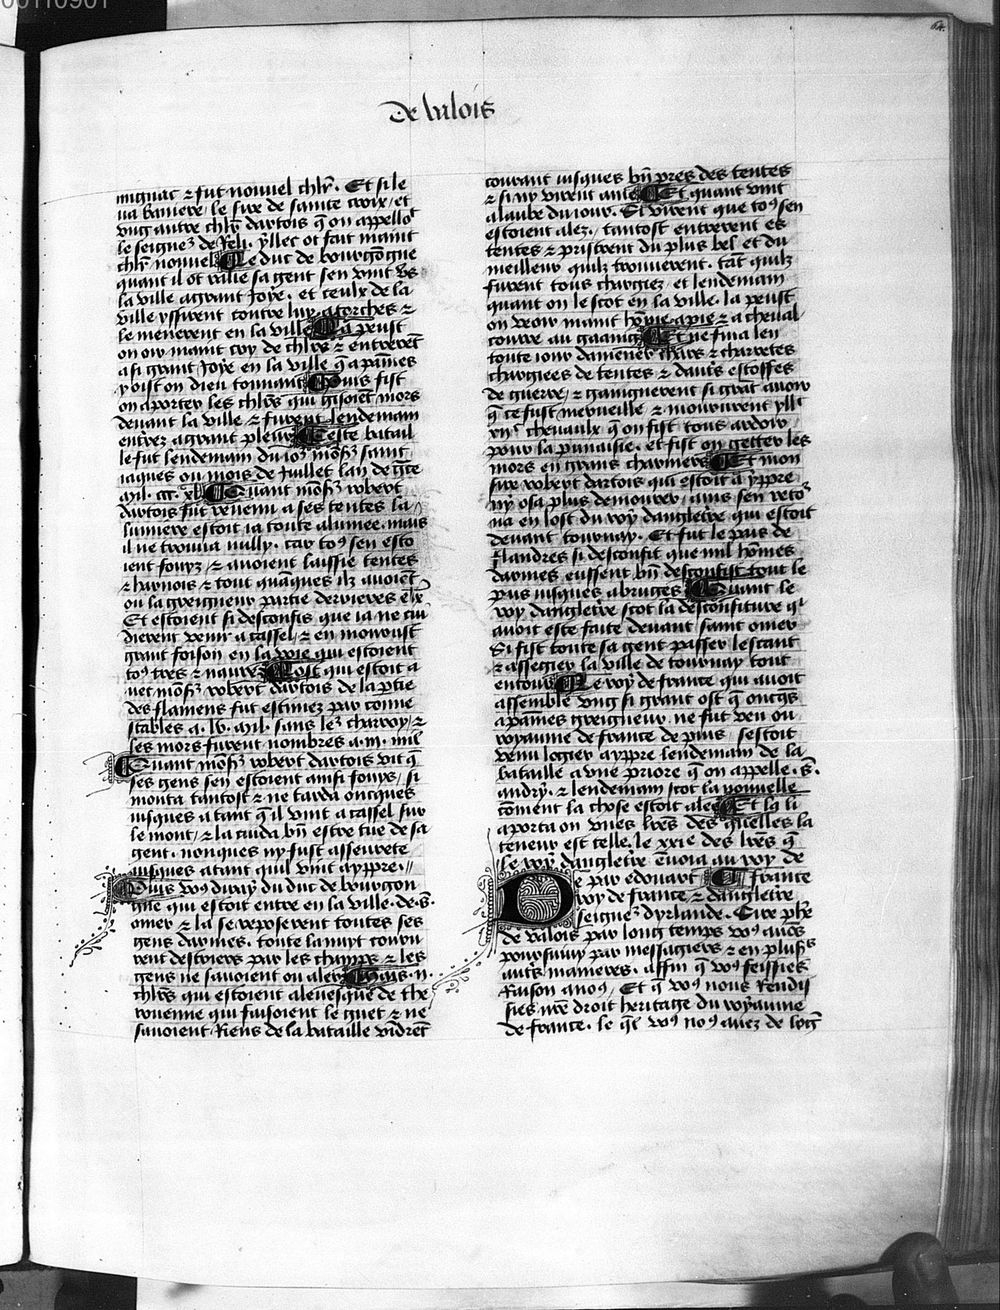 00110901
64.
de valois
mignac ⁊ fut nouuel chlr̄. Et si le
ua baniere / le sire de sainte croix / et
vng autre chlr̄ dartois q̄ on appelloit
le seigneʳ de Rely. yllec ot fait maint
chlr̄ nouuel Le duc de bourgongne
quant il ot ralie sa gent sen vint v̄s
la ville a grant Joye. et ceulx de la
ville yssirent contre luy a torches ⁊
le menerent en la ville La peust
on oir maint cry de chlrs̄ ⁊ entrerēt
a si grant Joye en la ville q̄ a paīnes
y oist on dieu tonnant Puis fist
on aporter les chlrs̄ qui gisoiēt mors
deuant la ville ⁊ furent lendemain
entrez a grant pleur Ceste batail
le fut lendemain du ioʳ mōsʳ saint
iaques ou mois de Juillet lan de gr̄ce
mil. ccc. xl Quant mōsʳ robert
dartois fut reuenu a ses tentes la
lumiere estoit ia toute alumee. mais
il ne trouua nully. car toꝰ sen esto
ient fouyz ⁊ auoient laissie tentes
⁊ harnois ⁊ tout quāques ilz auoiēt
ou la greigneur partie derrieres eulx
Et estoient si desconfis que ia ne cui
dierent venir a cassel / ⁊ en mourust
grant foison en la voie qui estoient
toꝰ ⁊ naurez Lost qui estoit a
uec mōsʳ robert dartois de la ptie
des flamens fut estimez par conne
stables a. lv. mil. sans les charroy / ⁊
les mors furent nombres a. m. mil
Quant mōsʳ robert dartois vit q̄
ses gens sen estoient ainsi fouys / si
monta tantost ⁊ ne tarda oncques
iusques a tant q̄ il vint a cassel sur
le mont / ⁊ la cuida bn̄ estre tue de sa
gent. nonques ny fust asseurete
iusques atant quil vint a yppre.
Puis voꝰ diray du duc de bourgon
gne qui estoit entre en la ville. de. s.
omer ⁊ la se reposerent toutes ses
gens darmes. toute la nuyt couru
rent destriers par les champs ⁊ les
gens ne sauoient ou aler Mais. ii.
chlrs̄ qui estoient aleuesque de the
rouenne qui faisoient le guet ⁊ ne
sauoient Riens de la bataille vīdrēt
courant iusques bn̄ pres des tentes
⁊ si ny virent ame Et quant vint
a laube du iour. Et virent que toꝰ sen
estoient alez. tantost entrerent es
tentes ⁊ pristrent du plus bel et du
meilleur quilz trouuerent. tāt quilz
furent tous chargiez et lendemain
quant on le scot en la ville. la peust
on veoir maint hōme apie ⁊ a cheual
courre au gaaing Et ne fina len
toute iour damener chars ⁊ charretes
chargiees de tentes ⁊ dautr̄s estoffes
de guerre / ⁊ gaaignerent si grāt auoir
q̄ ce fust merueille ⁊ moururent
cheuaulx q̄ on fist tous ardoir
pour la punaisie. et fist on getter les
mors en grans charniers Et mon
sire robert dartois qui estoit a yppre
ny osa plus demourer / ains sen retoʳ
na en lost du roy dangletr̄e qui estoit
deuant tournay. Et fut le pais de
flandres si desconfit que mil hōmes
darmes eussent bn̄ desconfist tout le
pais iusques a bruges Quant le
roy dangletr̄e scot la desconfiture qⁱ
auoit este faite deuant saint omer
Si fist toute sa gent passer lescaut
⁊ assegier la ville de tournay tout
entour Le roy de france qui auoit
assemble vng si grant ost q̄ oncq̄s
a paīnes greigneur. ne fut veu ou
royaume de france de puis / sestoit
venu logier a yppre lendemain de la
bataille a vne priore q̄ on appelle. s.
andry. ⁊ lendemain scot la nouuelle
cōment la chose estoit alee Et la li
aporta on vnes lr̄es des quelles la
teneur est telle. le xxie des lr̄es q̄
le roy dangletr̄e ēuoia au roy de
De par edouart france
roy de france ⁊ dangletr̄e
seigneʳ dyrlande. Sire phē
de valois par long temps voꝰ auōs
poursuiuy par messagiers ⁊ en plusʳs
autr̄s manieres. affin q̄ voꝰ feissies
Raison a noꝰ. Et q̄ voꝰ nous Rendis
sies nr̄e droit heritage du royaume
de france. le q̄l voꝰ noꝰ auez de lōg